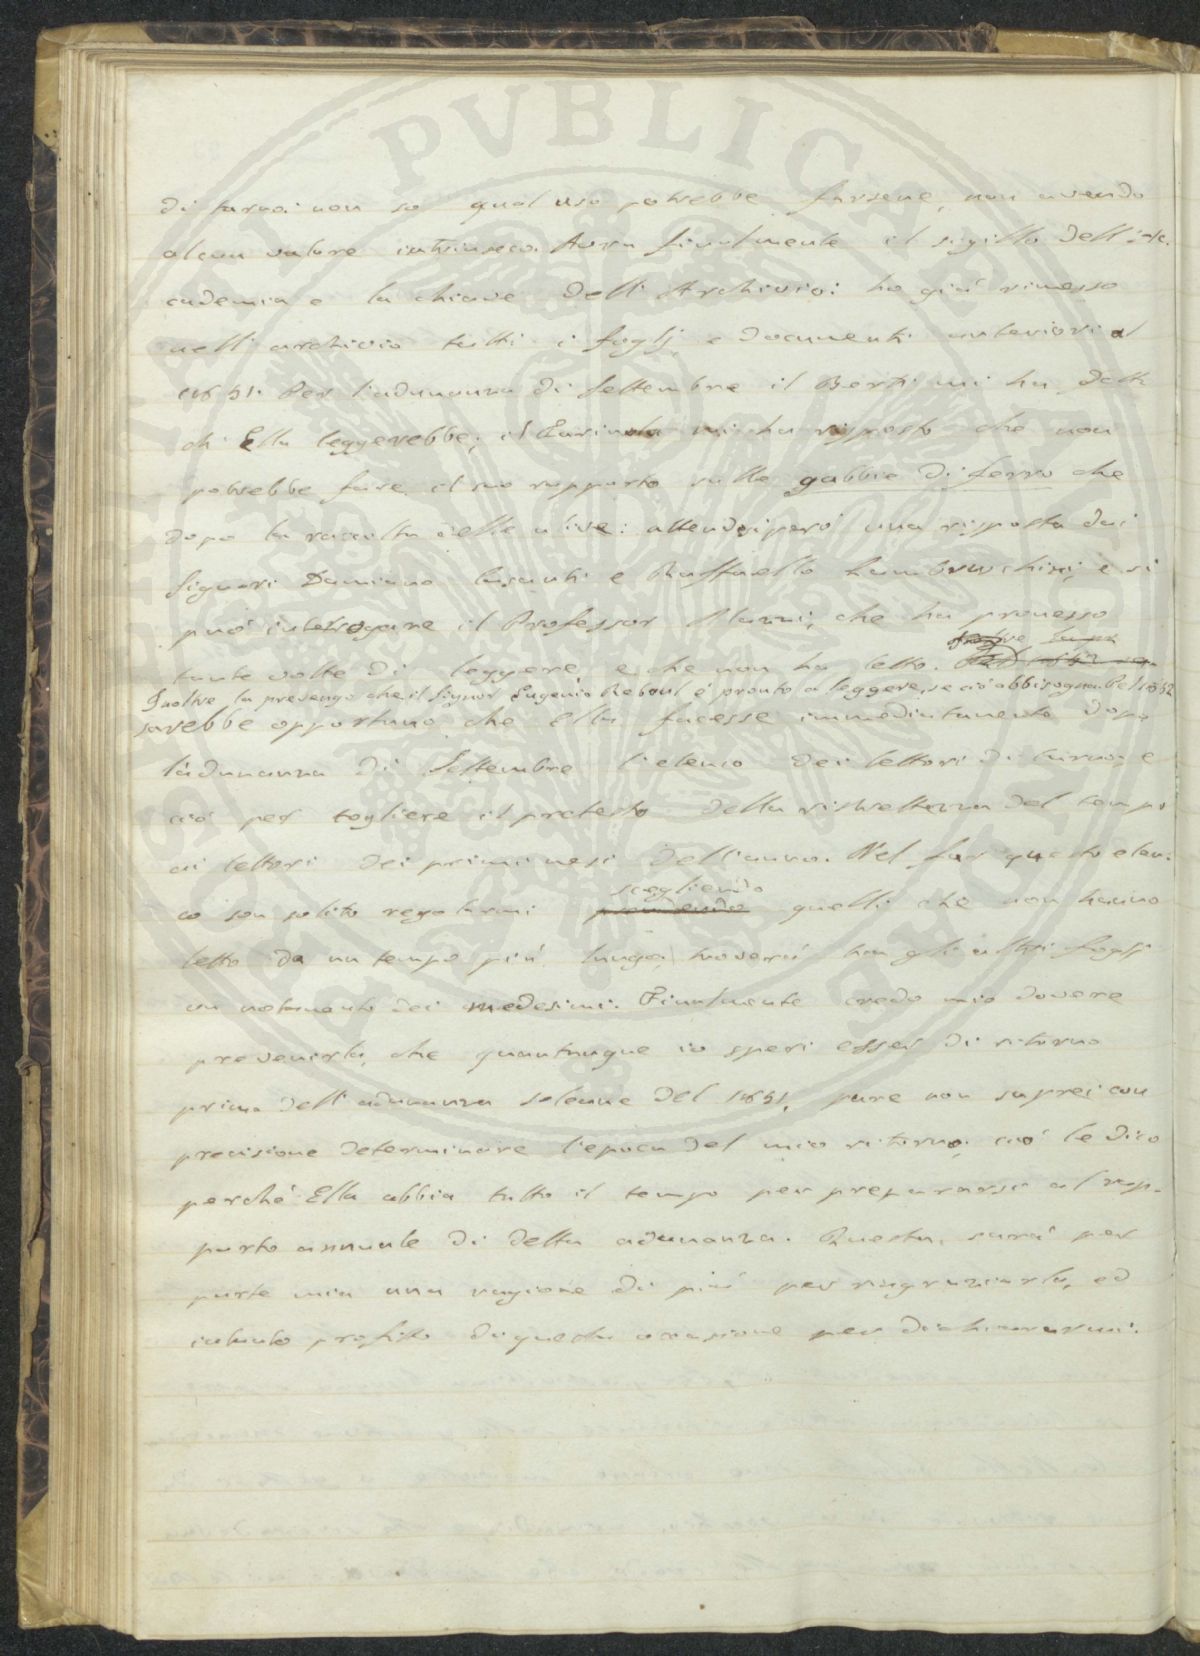 di farvi non so qual uso potrebbe farsene, non avendo
alcun valore intrinseco. Avrà finalmente il sigillo dell'Ac=
cademia e la chiave dell'Archivio: ho già rimesso
nell'archivio tutti i foglj, e documenti anteriori al
1851. Per l'adunanza di Settembre il Berti mi ha detto
ch'Ella leggerebbe; il Farinola mi ha risposto che non
potrebbe fare il suo rapporto sulle gabbie di ferro che
dopo la raccolta delle ulive: attendo però una risposta dai
Signori Damiano Casanti e Raffaello Lambruschini; e si
può interrogare il Professor Mazzi, che ha promesso
tante volte di leggere, e che non ha letto.
Inoltre la prevengo che il Signor Eugenio Reboul è pronto a leggere, se ciò abbisogna. Pel 1852
sarebbe opportuno che Ella facesse immediatamente dopo
l'adunanza di Settembre l'elenco dei lettori di turno; e
ciò per togliere il pretesto della ristrettezza del tempo
ai lettori dei primi mesi dell'anno. Nel far questo elen=
scegliendo
co son solito regolarmi prendendo quelli che non hanno
letto da un tempo più lungo; troverà tra gli altri foglj
un notamento dei medesimi. Finalmente credo mio dovere
prevenirla, che quantunque io speri esser di ritorno
prima dell'adunanza solenne del 1851, pure non saprei con
precisione determinare l'epoca del mio ritorno; ciò le dico
perché Ella abbia tutto il tempo per prepararsi al rap-
porto annuale di detta adunanza. Questa, sarà per
parte mia una ragione di più per ringraziarla, ed
intanto profitto di questa occasione per dichiararmi.
PVBLICAE